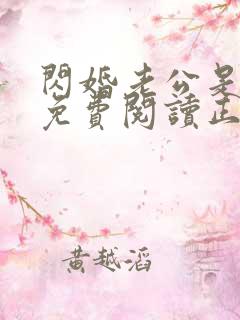 閃婚老公是
免費閱讀正
黃越滔